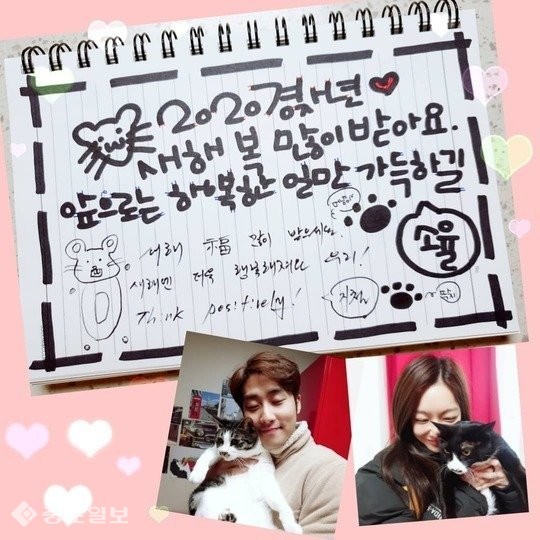 2020경자년
새해 복 많이 받아요.
앞으로는 행복한 일만 가득하길
소율
새해 福 많이 받으세요
새해엔 더욱 행복해져요 우리!
Think positively!
중도일보